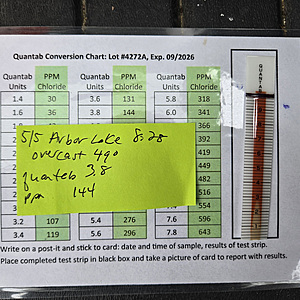 Quantab Conversion Chart: Lot #4272A, Exp. 09/2026
Quantab Units PPM Chloride Quantab Units PPM Chloride Quantab Units PPM Chloride
1.4 30 3.6 131 5.8 318
1.6 36 3.8 144 6.0 341
366
392
419
449
482
516
554
3.2 107 5.4 276 7.6 596
3.4 119 5.6 296 7.8 643
5/5 Arbor Lake 8:28
overcast 49°
quantab 3.8
ppm 144
QUANTAB
Write on a post-it and stick to card: date and time of sample, results of test strip.
Place completed test strip in black box and take a picture of card to report with results.